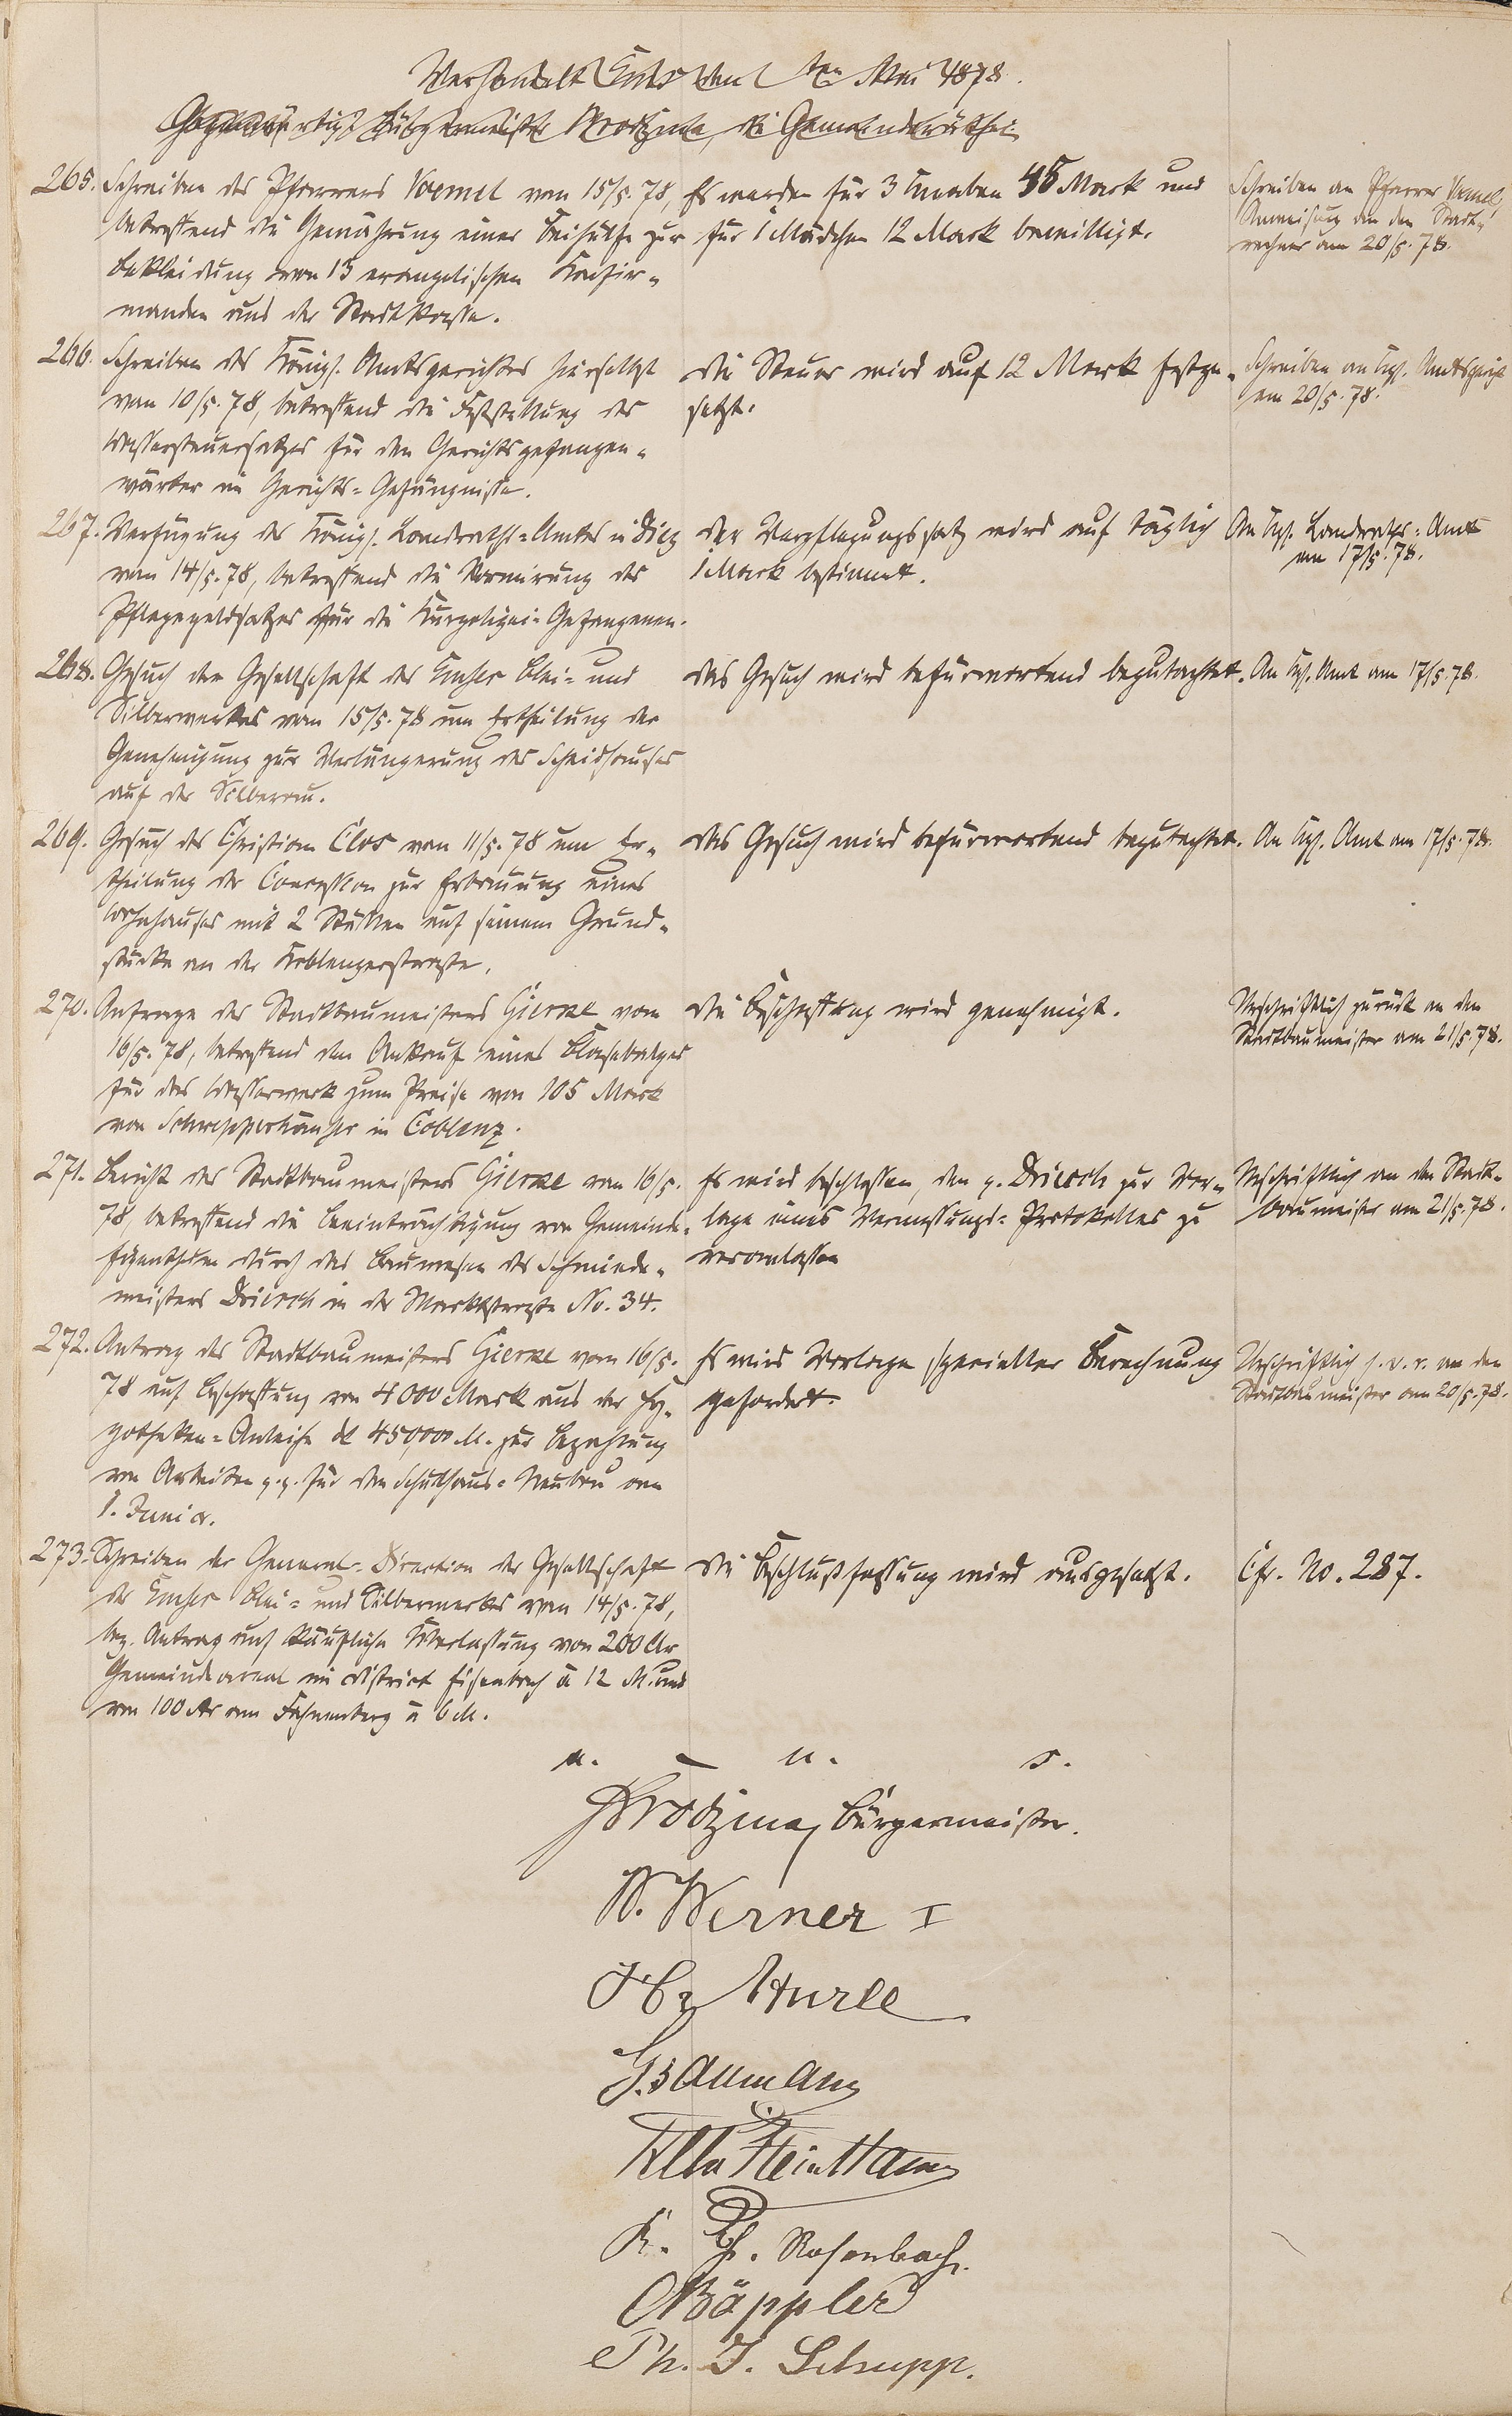 Verhandelt Ems den ten Mai 1878.
Gegenwärtig: Bürgermeister Krotzina, die Gemeinderäthe:
265. Schreiben des Pfarrers Vömel vom 15/5. 78,
betreffend die Gewährung einer Beihülfe zur
Bekleidung von 13 evangelischen Konfir-
manden aus der Stadtkasse.
Es werden für 3 Knaben 45 Mark und
für 1 Mädchen 12 Mark bewilligt.
Schreiben an Pfarrer Vömel,
Anweisung an den Stadt-
rechner am 20/5. 78.
266. Schreiben des Königl. Amtsgerichtes hierselbst
vom 10/5. 78, betreffend die Feststellung des
Wassersteuersatzes für den Gerichtsgefangen-
wärter im Gerichts-Gefängnisse.
Die Steuer wird auf 12 Mark festge-
setzt.
Schreiben an Kgl. Amtsgericht
am 20/5. 78.
267. Verfügung des Königl. Landraths-Amtes in Diez
vom 14/5. 78, betreffend die Normirung des
Pflegegeldsatzes für die Kurpolizei-Gefangenen.
Der Verpflegungssatz wird auf täglich
1 Mark bestimmt.
An Kgl. Landraths-Amt
am 17/5. 78.
268. Gesuch der Gesellschaft des Emser Blei- und
Silberwerkes vom 15/5. 78 um Ertheilung der
Genehmigung zur Verlängerung des Scheidhauses
auf der Silberau.
Das Gesuch wird befürwortend begutachtet.
An Kgl. Amt am 17/5. 78.
269. Gesuch des Christian Clos vom 11/5. 78 um Er-
theilung der Concession zur Erbauung eines
Wohnhauses mit 2 Ställen auf seinem Grund-
stücke an der Koblenzerstraße.
Das Gesuch wird befürwortend begutachtet.
An Kgl. Amt am 17/5. 78.
270. Anfrage des Stadtbaumeisters Gierke vom
16/5. 78, betreffend den Ankauf eines Blasebalges
für das Wasserwerk zum Preise von 105 Mark
von Schwepperhäuser in Coblenz.
Die Beschaffung wird genehmigt.
Urschriftlich zurück an den
Stadtbaumeister am 21/5. 78.
271. Bericht des Stadtbaumeisters Gierke vom 16/5.
78, betreffend die Beeinträchtigung von Gemeinde-
Eigenthum durch das Bauwesen des Schmiede-
meisters Driesch in der Marktstraße No. 34.
Es wird beschlossen, den p. Driesch zur Vor-
lage eines Vermessungs-Protokolles zu
veranlassen
Urschriftlich an den Stadt-
baumeister am 21/5. 78.
272. Antrag des Stadtbaumeisters Gierke vom 16/5.
78 auf Beschaffung von 4000 Mark aus der Hy-
potheken-Anleihe de 450,000 M. zur Bezahlung
von Arbeiten p.p. für den Schulhaus-Neubau am
1. Juni cr.
Es wird Vorlage spezieller Berechnung
gefordert.
Urschriftlich s. v. r. an den
Stadtbaumeister am 20/5. 78.
273. Schreiben der General-Direction der Gesellschaft
des Emser Blei- und Silberwerkes vom 14/5. 78,
bez. Antrag auf käufliche Ueberlassung von 200 Ar
Gemeindeareal im District Eisenbach à 12 M. und
von 100 Ar am Fahnenberg à 6 M.
Die Beschlußfassung wird ausgesetzt.
Cfr. No. 287.
a. u. s.
Krotzina, Bürgermeister.
W. Werner I
Hurle
K. Ph. Rosenbach.
Bäppler
Ph. J. Schupp.